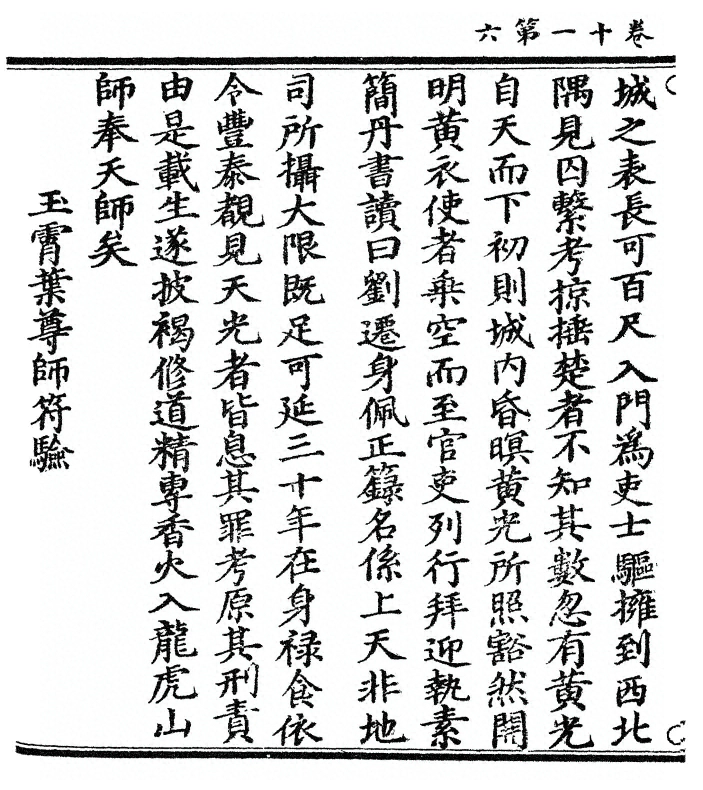 卷十一第六
城之表長可百尺入門爲吏士驅擁到西北
隅見囚繫考掠捶楚者不知其數忽有黃光
自天而下初則城内昏暝黃光所照豁然開
明黃衣使者乘空而至官吏列行拜迎執素
簡丹書讀曰劉遷身佩正籙名係上天非地
司所攝大限既足可延三十年在身祿食依
令豐泰覩見天光者皆息其罪考原其刑責
由是載生遂披褐修道精專香火入龍虎山
師奉天師矣
玉霄葉尊師符驗